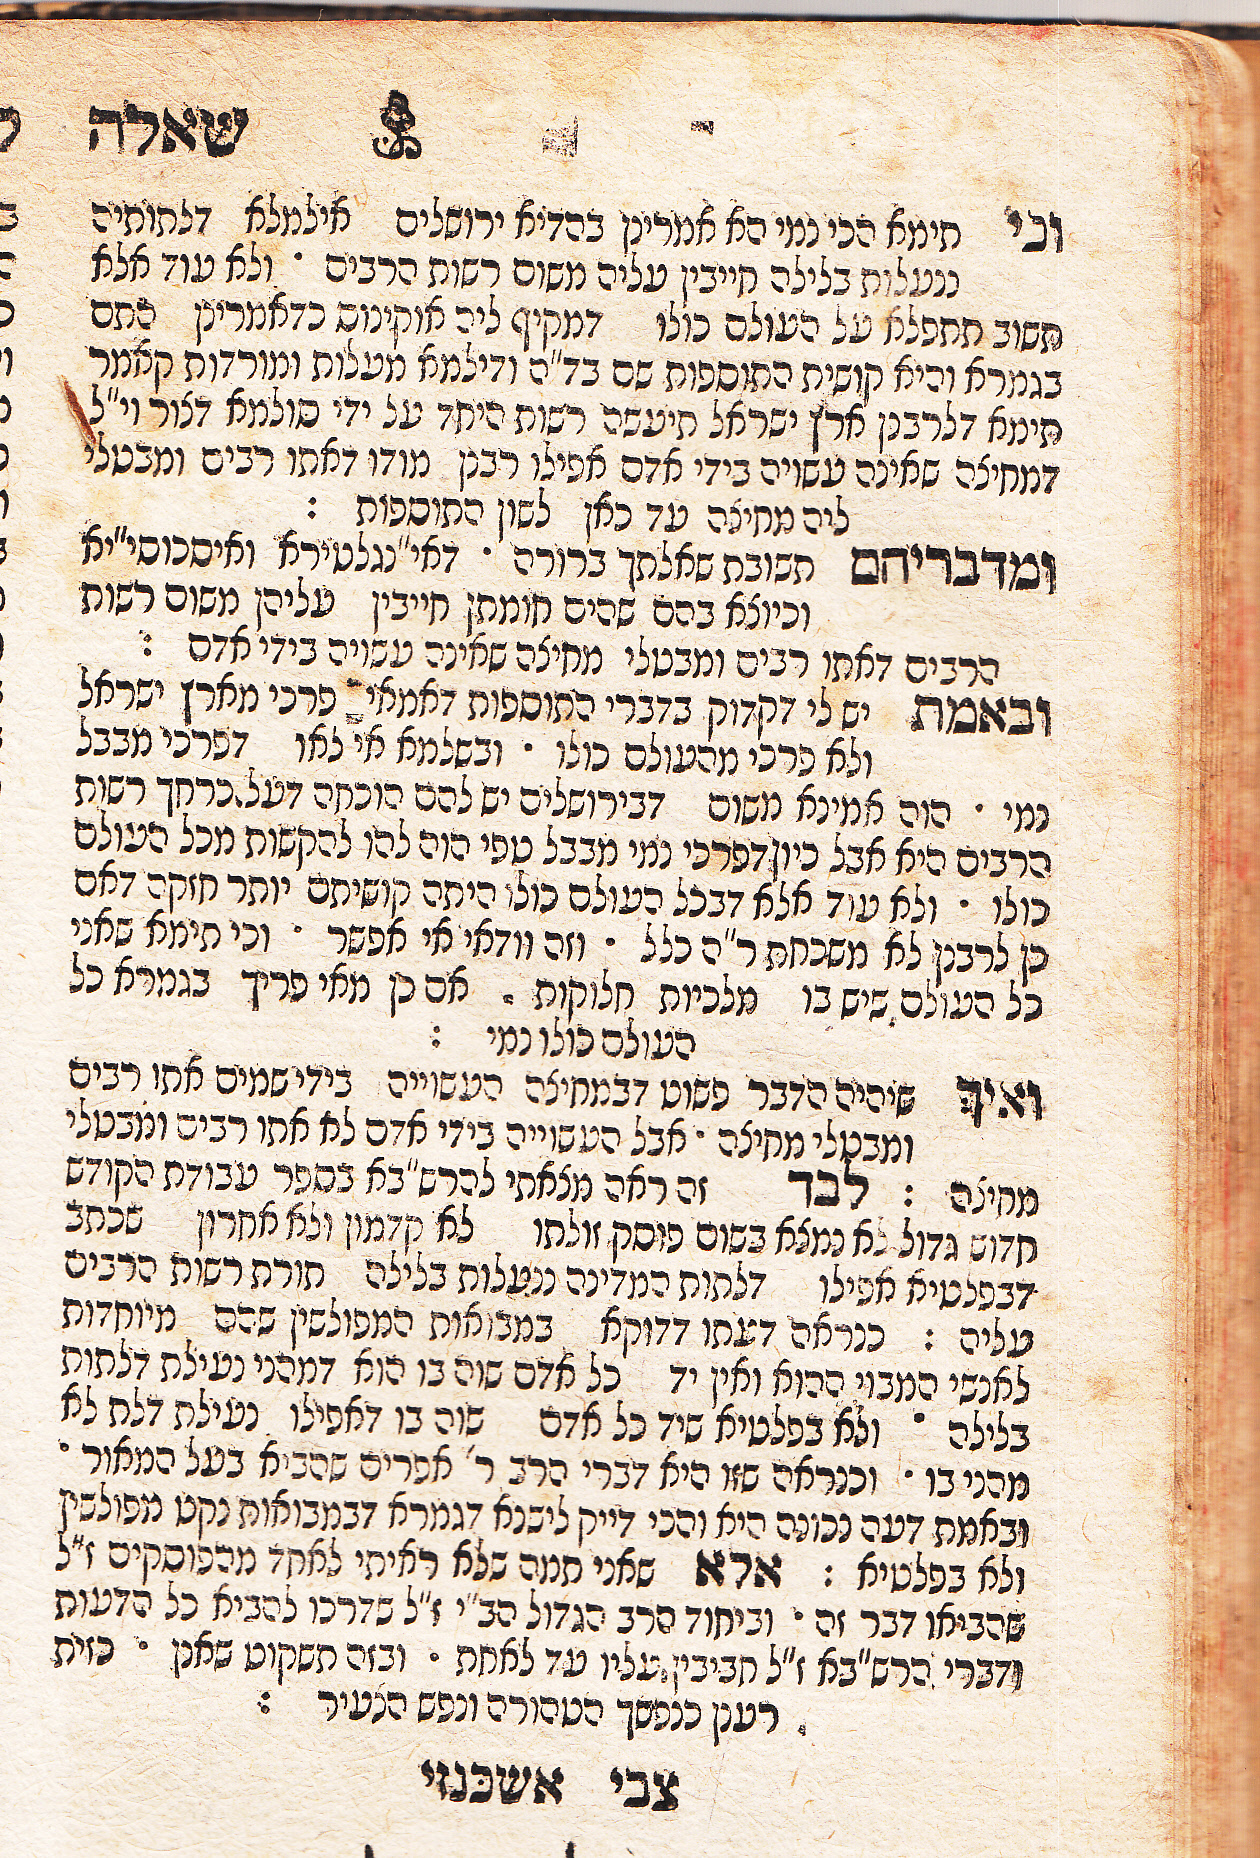 שאלה
וכי תימא הכי נמי הא אמרינן בהדיא ירושלים אילמלא דלתותיה
ננעלות בלילה חייבין עליה משום רשות הרבים ׃ ולא עוד אלא
תשוב תתפלא על העולם כולו דמקיף ליה אוקינוס כדאמרינן התם
בגמרא והיא קושית התוספות שם בד"ה ודילמא מעלות ומורדות קאמר
תימא דלרבנן ארץ ישראל תיעשה רשות היחד על ידי סולמא דצור וי"ל
דמחיצה שאינה עשויה בידי אדם אפילו רבנן מודו דאתו רבים ומבטלי
ליה מחיצה עד כאן לשון התוספות :
ומדבריהם תשובת שאלתך ברורה · דאי"נגלטירא ואיסכוסי"יא
וכיוצא בהם שהים חומתן חייבין עליהן משום רשות
הרבים דאתו רבים ומבטלי מחיצה שאינה עשויה בידי אדם :
ובאמת יש לי דקדוק בדברי התוספות דאמאי פרכי מארץ ישראל
ולא פרכי מהעולם כולו · ובשלמא אי לאו דפרכי מבבל
נמי · הוה אמינא משום דבירושלים יש להם הוכחה דעל כרחך רשות
הרבים היא אבל כיון דפרכי נמי מבבל טפי הוה להו להקשות מכל העולם
כולו · ולא עוד אלא דבכל העולם כולו היתה קושיתם יותר חזקה דאם
כן לרבנן לא משכחת ר"ה כלל · וזה וודאי אי אפשר · וכי תימא שאני
כל העולם שיש בו מלכיות חלוקות . אם כן מאי פריך בגמרא כל
העולם כולו נמי :
ואיך שיהיה הדבר פשוט דבמחיצה העשוייה בידי שמים אתו רבים
ומבטלי מחיצה · אבל העשוייה בידי אדם לא אתו רבים ומבטלי
מחיצה : לבד זה ראה מצאתי להרש"בא בספר עבודת הקודש
חדוש גדול לא נמצא בשום פוסק זולתו לא קדמון ולא אחרון שכתב
דבפלטיא אפילו דלתות המדינה ננעלות בלילה תורת רשות הרבים
עליה : כנראה דעתו דדוקא במבואות המפולשין שהם מיוחדות
לאנשי המבוי ההוא ואין יד כל אדם שוה בו הוא דמהני נעילת דלתות
בלילה · ולא בפלטיא שיד כל אדם שוה בו דאפילו נעילת דלת לא
מהני בו · וכנראה שזו היא דברי הרב ר' אפרים שהביא בעל המאור ·
ובאמת דעה נכונה היא והכי דייק לישנא דגמרא דבמבואות נקט מפולשין
ולא בפלטיא : אלא שאני תמה שלא ראיתי לאחד מהפוסקים ז"ל
שהביאו דבר זה · וביחוד הרב הגדול הב"י ז"ל שדרכו להביא כל הדעות
ודברי הרש"בא ז"ל חביבין עליו עד לאחת · ובזה תשקוט שאנן · כזית
רענן כנפשך הטהורה ונפש הצעיר :
צבי אשכנזי